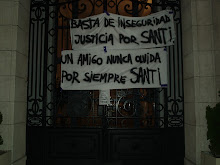 BASTA DE INSEGURIDAD
JUSTICIA POR SANTI
UN AMIGO NUNCA OLVIDA
POR SIEMPRE SANTI